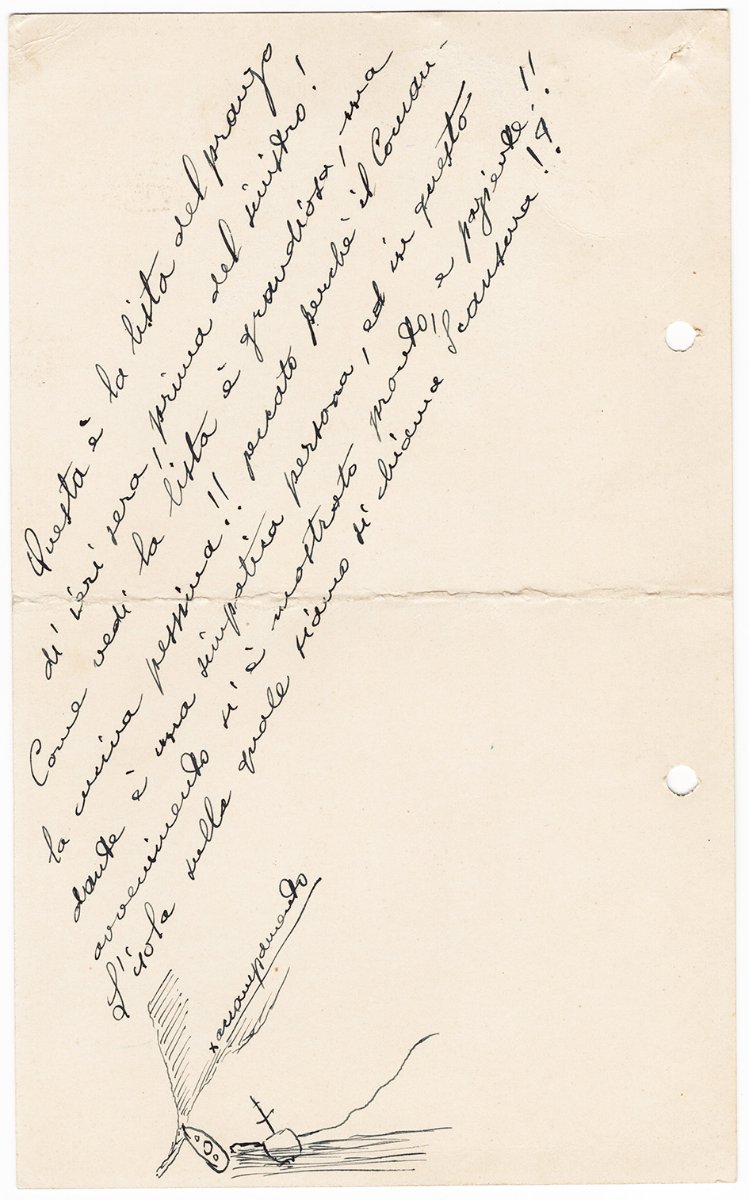 Questa è la lista del pranzo
di ieri sera, prima del sinistro!
Come vedi la lista è grandiosa, ma
la cucina pessima!! peccato perchè il Coman-
dante è una simpatica persona, ed in questo
avvenimento si è mostrato pronto, e paziente!!
L'isola sulla quale siamo si chiama!?
accampamento